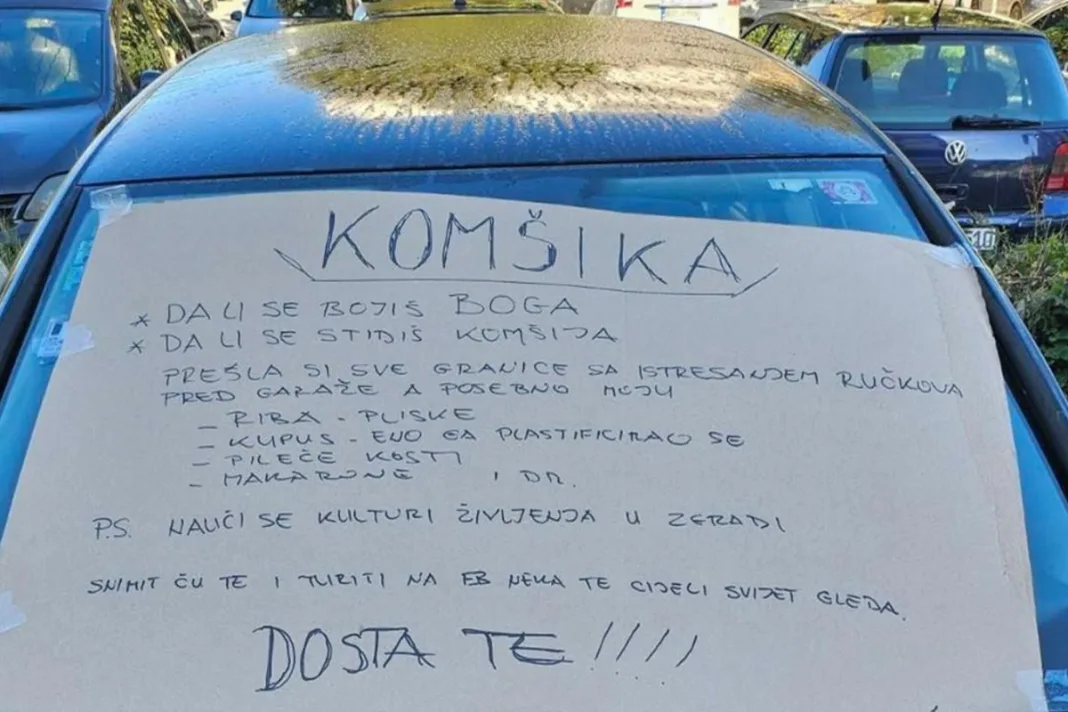 KOMŠIKA
* DA LI SE BOJIŠ BOGA
* DA LI SE STIDIŠ KOMŠIJA
PREŠLA SI SVE GRANICE SA ISTRESANJEM RUČKOVA
PRED GARAŽE A POSEBNO MOJU
- RIBA - PLISKE
- KUPUS - EVO GA PLASTIFICIRAO SE
- PILEČE KOSTI
- MAKARONE I DR.
P.S. NAUČI SE KULTURI ŽIVLJENJA U ZGRADI
SNIMIT ĆU TE I TURITI NA FB NEKA TE CIJELI SVIJET GLEDA.
DOSTA TE !!!!!